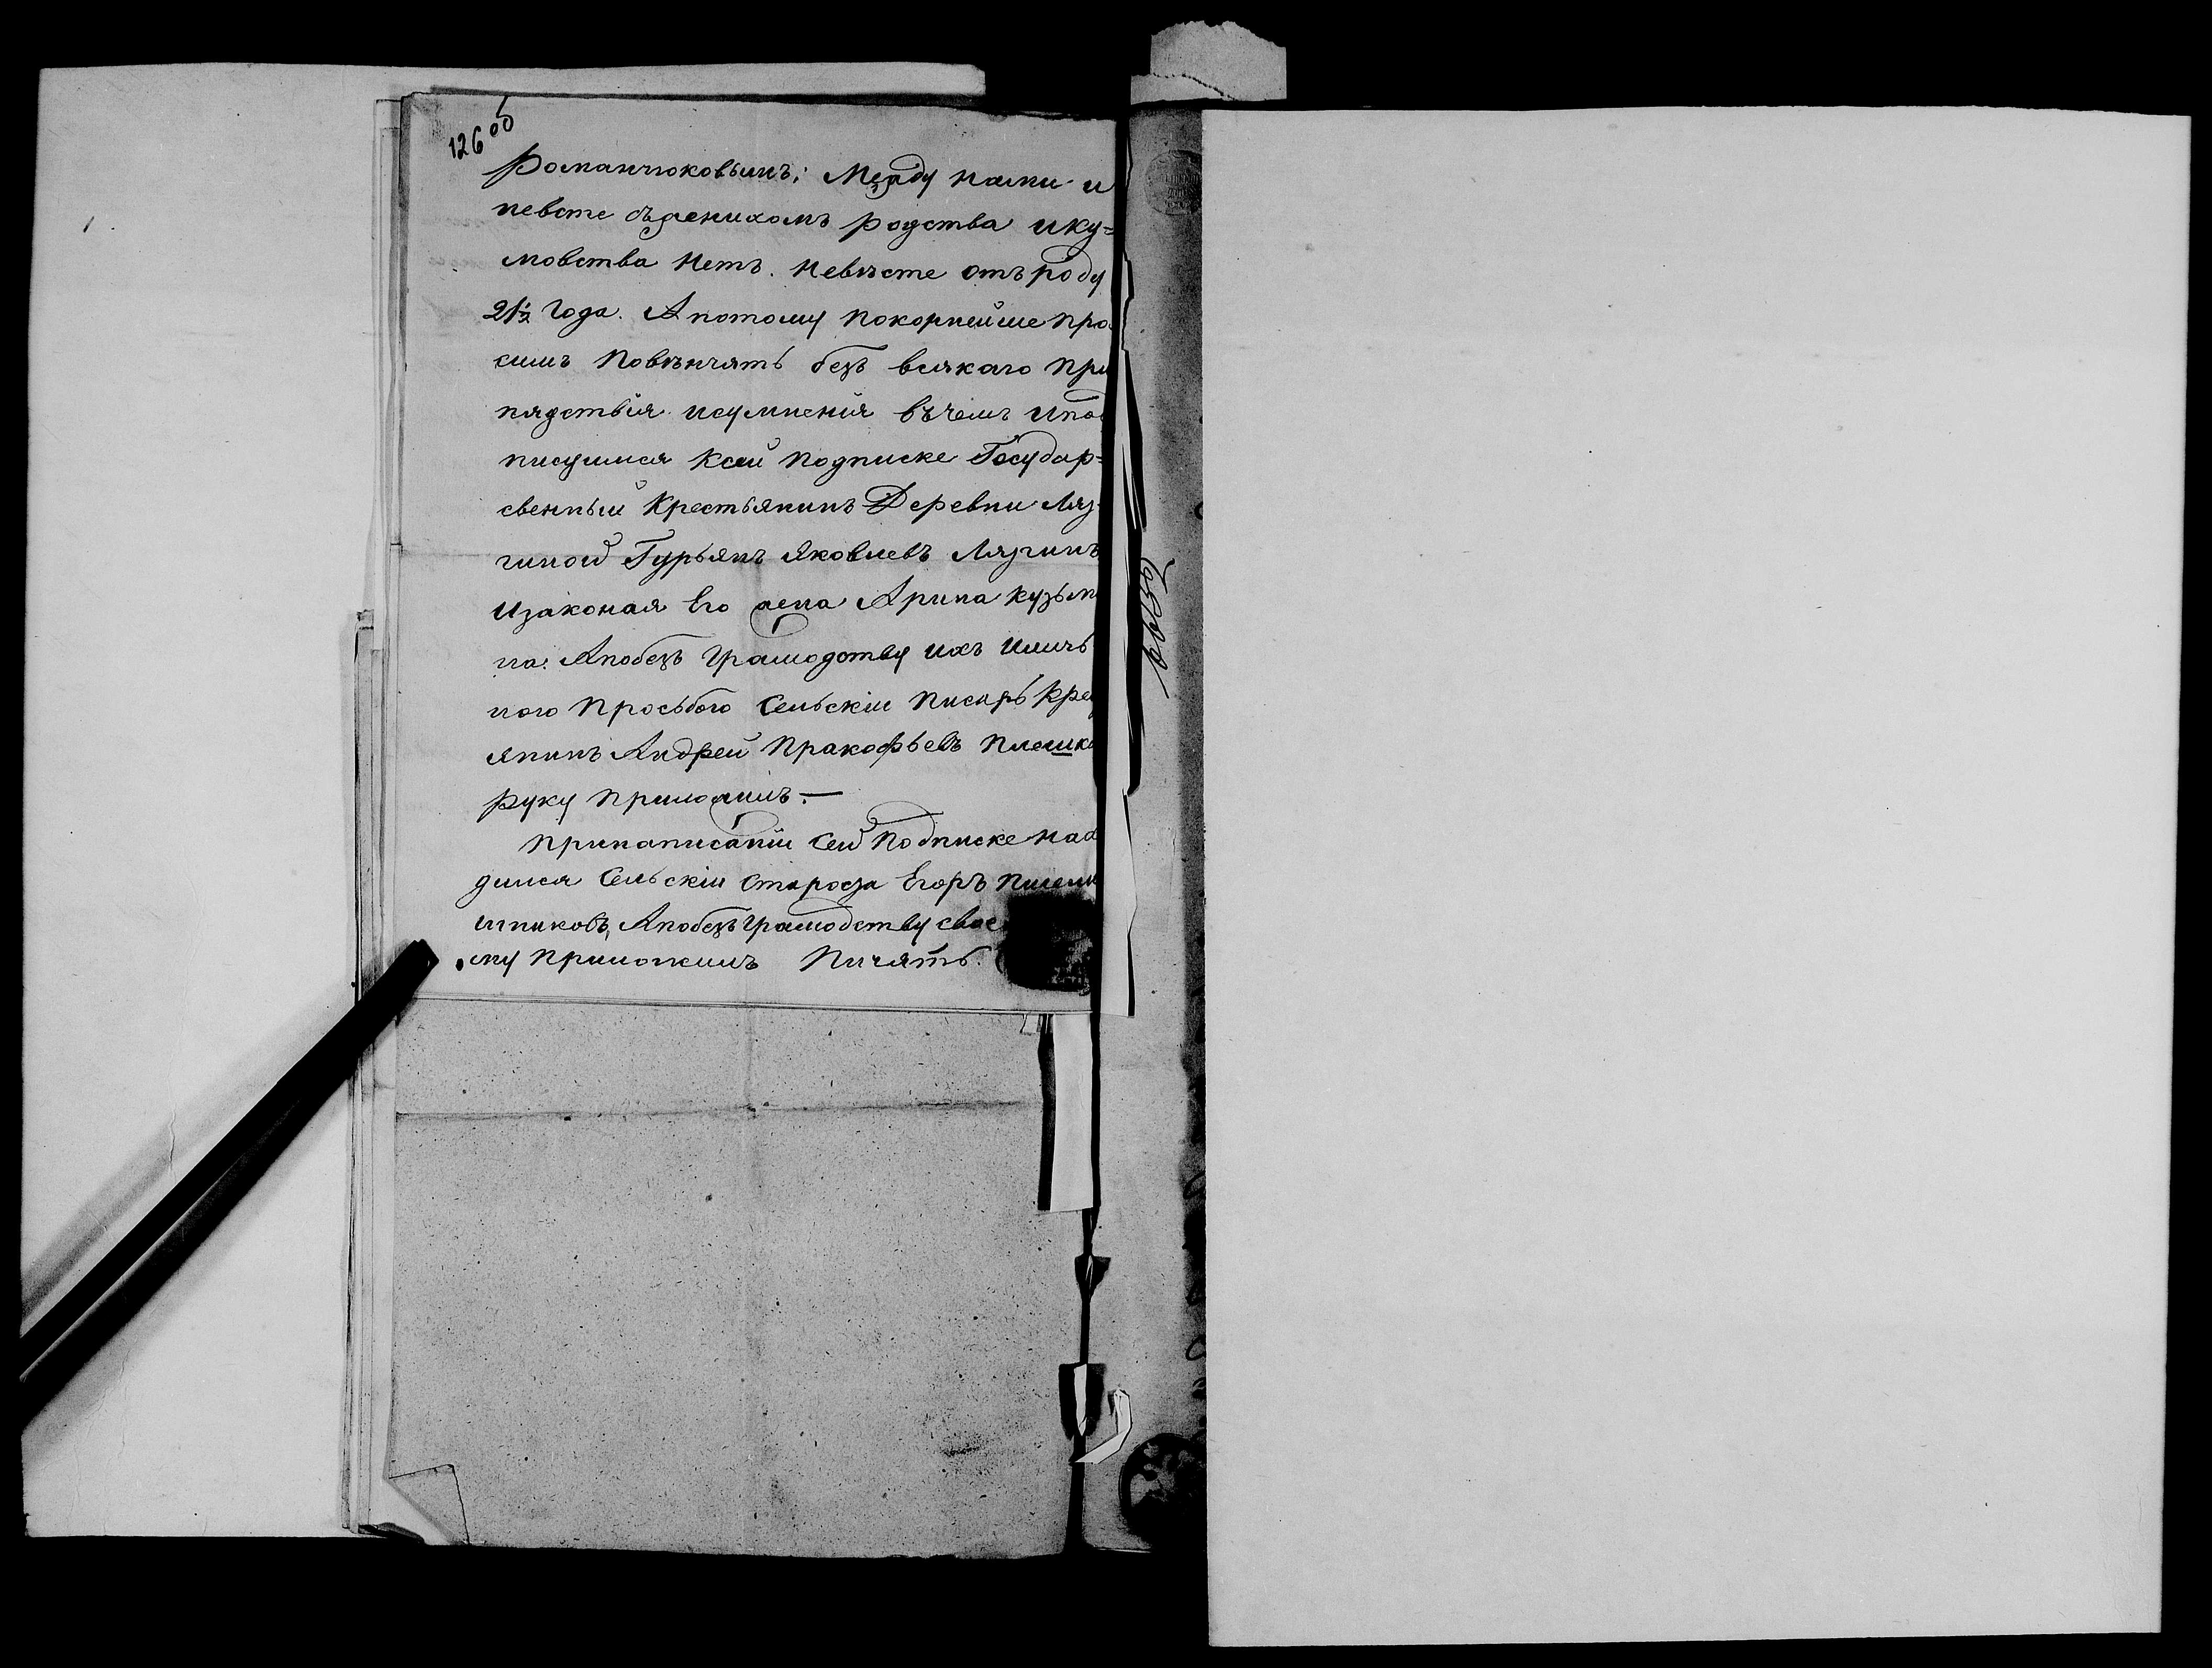 126 об
Романчюковымъ; Между нами и
невсте съ женихомъ родства ику=
мовства нетъ. невѣсте отъ роду
21½ Года. А потому покорнейше про
симъ Повѣнчять безъ всякаго При
пядствія исумненія въ чемъ ипод
писуимся Ксей подписке Государ=
свенный Крестьянинъ Деревни Ляз
гиной Гурьянъ Яковлевъ Лязгинъ
Изаконая Его жена Арина Кузьми
на. А побезъ Грамодству ихъ Иличь
ною Просьбою Сельскій Писарь Крес
янинъ Андрей Пракофьевъ Плешко
Руку Приложилъ.—
Принаписаніи Сей Подписке нахо
дился Сельскій Староста Егоръ
Апобезъ Грамодству свое
му Приложилъ Пичять.